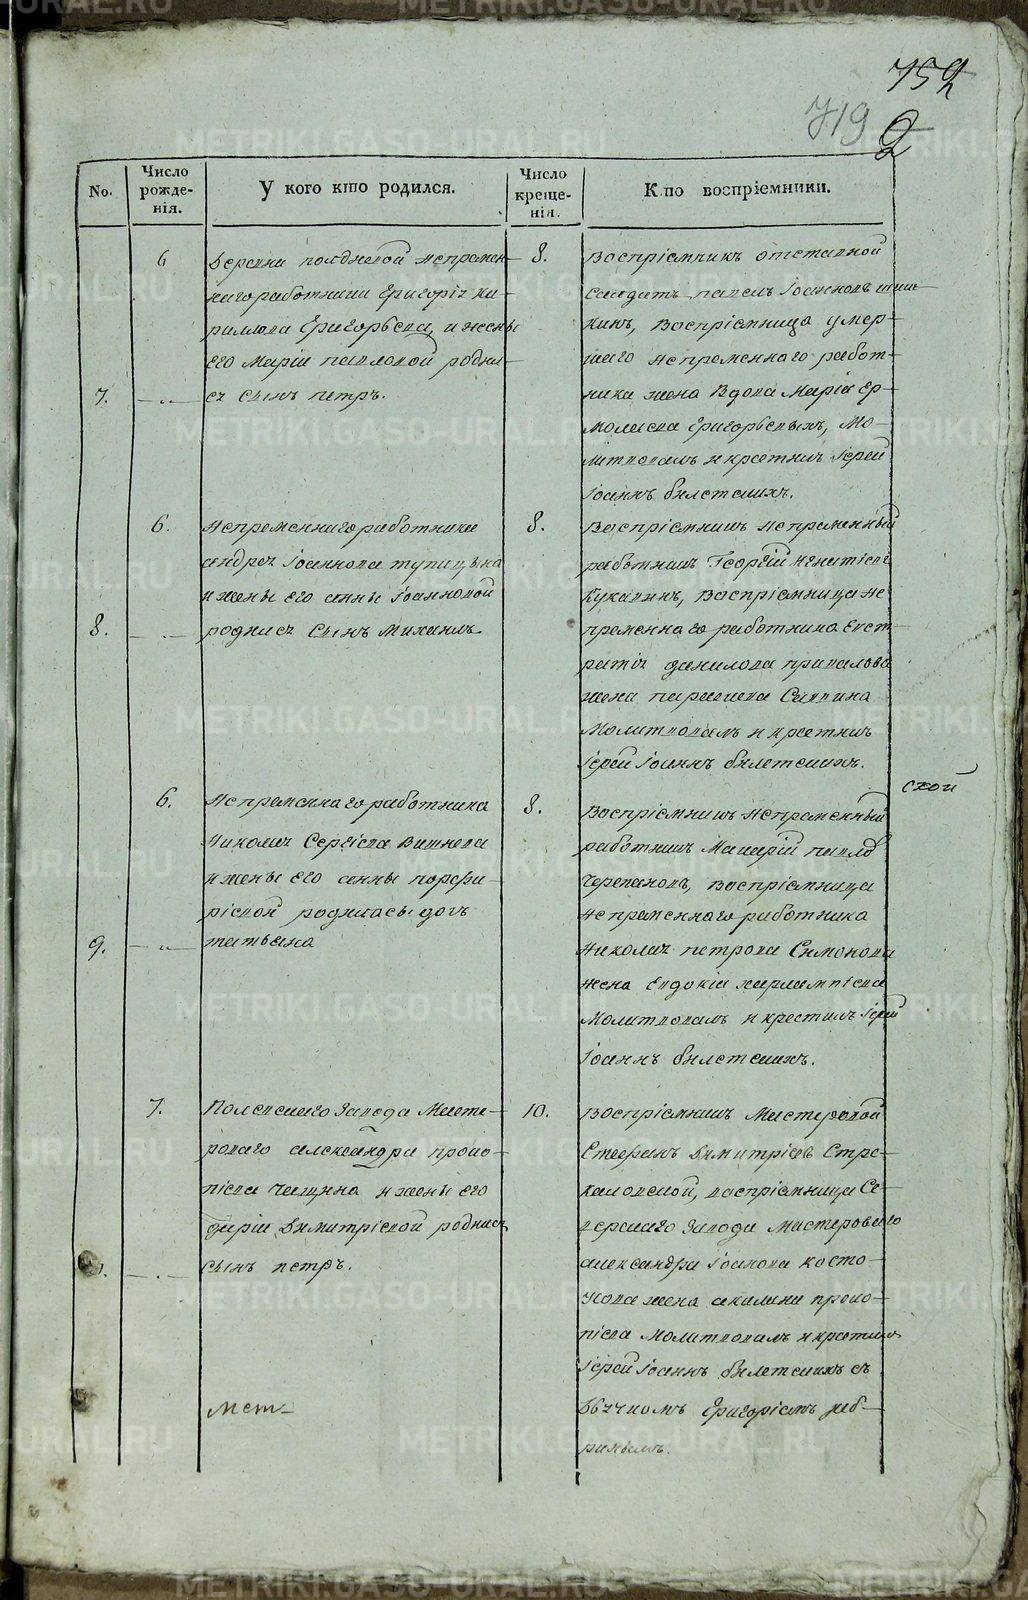 752
719
2
No.
Число рожде-нія.
У кого кто родился.
Число креще-нія.
Кто воспріемники.
6
Деревни полдневой непремен-
наго работника Григорія Ки-
рилова Григорьева, и жены
его Маріи павловой родил-
7. —„—
ся сынъ петръ.
8.
Воспріемникъ отставной
Солдатъ павелъ Іоанновъ шиш-
кинъ, Воспріемница умер-
шаго непременнаго работ-
ника жена Вдова Марія Ер-
молаева Григорьевыхъ, Мо-
литвовалъ и крестилъ Іерей
Іоаннъ
6.
Непременнаго работника
андрея Іоаннова тупицына
и жены его анны Іоанновой
8. —„—
родился сынъ Михаилъ
8.
Воспріемникъ Непременный
работникъ Георгій Игнатіевъ
Кукаринъ, Воспріемница не
пременнаго работника Евст-
ратія данилова привалова
жена параскева Саввина
Молитвовалъ и крестилъ
Іерей Іоаннъ
6.
Непременнаго работника
Николая Сергіева
и жены его анны порфи-
ріевой родилась дочь
9. —„—
татьяна
8.
ской
Воспріемникъ Непременный
работникъ Макарій павловъ
Черепановъ, воспріемница
непременнаго работника
Николая петрова Симонова
жена Евдокія харлампіева
Молитвовалъ и крестилъ Іерей
Іоаннъ
7.
Полевскаго Завода Масте-
роваго александра проко-
піева и жены его
дарьи Димитріевой родился
сынъ петръ.
10.
Воспріемникъ Мастеровой
Стефанъ Димитріевъ Стре-
каловской, воспріемница Се-
верскаго Завода Мастероваго
александра Іоанова косто-
усова жена акилина проко-
піева Молитвовалъ и крестилъ
Іерей Іоаннъ съ
Дьячкомъ Григоріемъ
Мет-
METRIKI.GASO-URAL.RU